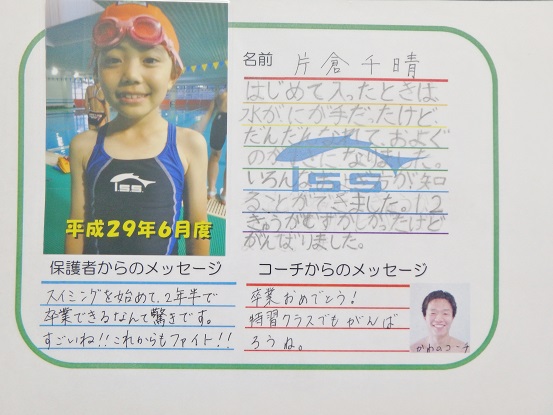 名前 片倉千晴
はじめて入ったときは
水がにが手だったけど、
だんだんなれて、およぐ
のがすきになりました。
いろんなおよぎ方が知
ることができました。1、2
きゅうがむずかしかったけど
がんばりました。
ISS
ISS
平成29年6月度
保護者からのメッセージ
スイミングを始めて、2年半で
卒業できるなんて驚きです。
すごいね!!これからもファイト!!
コーチからのメッセージ
卒業おめでとう!
特習クラスでもがんば
ろうね。
かわのコーチ